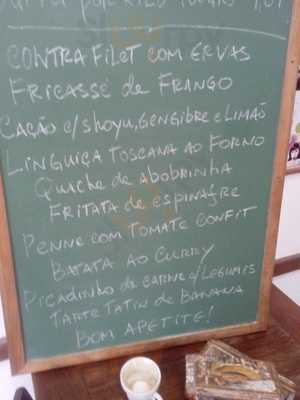 por kilo
CONTRA FILET COM ERVAS
FRICASSÉ de FRANGO
CAÇÃO c/ shoyu, GENGIBRE e LIMÃO
LINGUIÇA TOSCANA AO FORNO
QUICHE de ABOBRINHA
FRITATA de ESPINAFRE
PENNE COM TOMATE CONFIT
BATATA AO CURRY
PICADINHO de CARNE c/ LEGUMES
TARTE TATIN de BANANA
BOM APETITE!